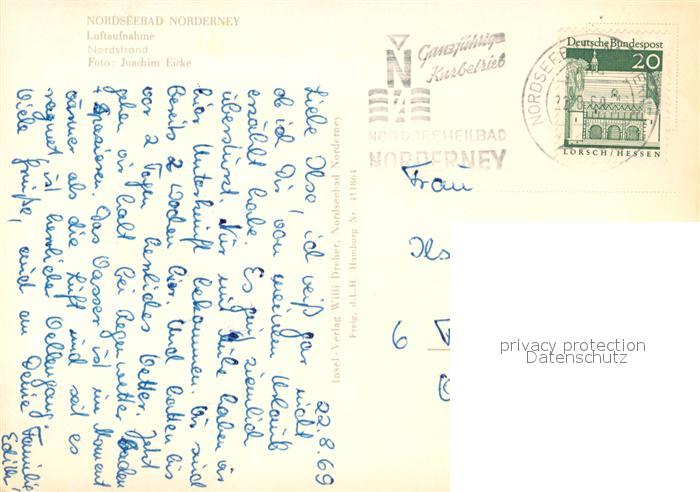 NORDSEEBAD NORDERNEY
Luftaufnahme
Nordstrand
Foto: Joachim Eicke
Ganzjährig
Kurbetrieb
N
NORDSEEHEILBAD
NORDERNEY
NORDSEE
Deutsche Bundespost
20
LORSCH/HESSEN
22.8.69
Liebe Ilse, ich weiß gar nicht
ob ich Dir von meinem Urlaub
erzählt habe. Es ging ziemlich
überstürzt. Nur mit Mühe haben wir
hier Unterkunft bekommen. Wir sind
bereits 2 Wochen hier. Und hatten bis
vor 2 Tagen herrliches Wetter. Jetzt
gehen wir halt bei Regenwetter Baden
+ Spazieren. Das Wasser ist im Moment
wärmer als die Luft und seit es
regnet, ist herrlicher Wellengang.
Viele Grüße, auch an Deine Familie
Edith
Insel-Verlag Willi Dreher, Nordseebad Norderney
Freig. d. L.H. Hamburg Nr. 411864
Frau
Ils
6
privacy protection
Datenschutz